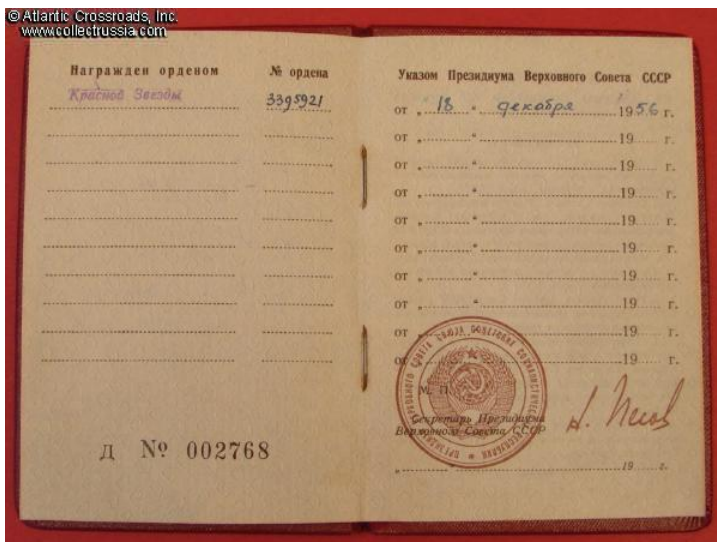 © Atlantic Crossroads, Inc.
www.collectrussia.com
Награжден орденом № ордена
Красной Звезды 3395921
Д № 002768
Указом Президиума Верховного Совета СССР
от „ 18 “ декабря 1956 г.
от „ “ 19 г.
от „ “ 19 г.
от „ “ 19 г.
от „ “ 19 г.
от „ “ 19 г.
от „ “ 19 г.
от „ “ 19 г.
от „ “ 19 г.
от „ “ 19 г.
М. П.
Секретарь Президиума
Верховного Совета СССР
„ “ 19 г.